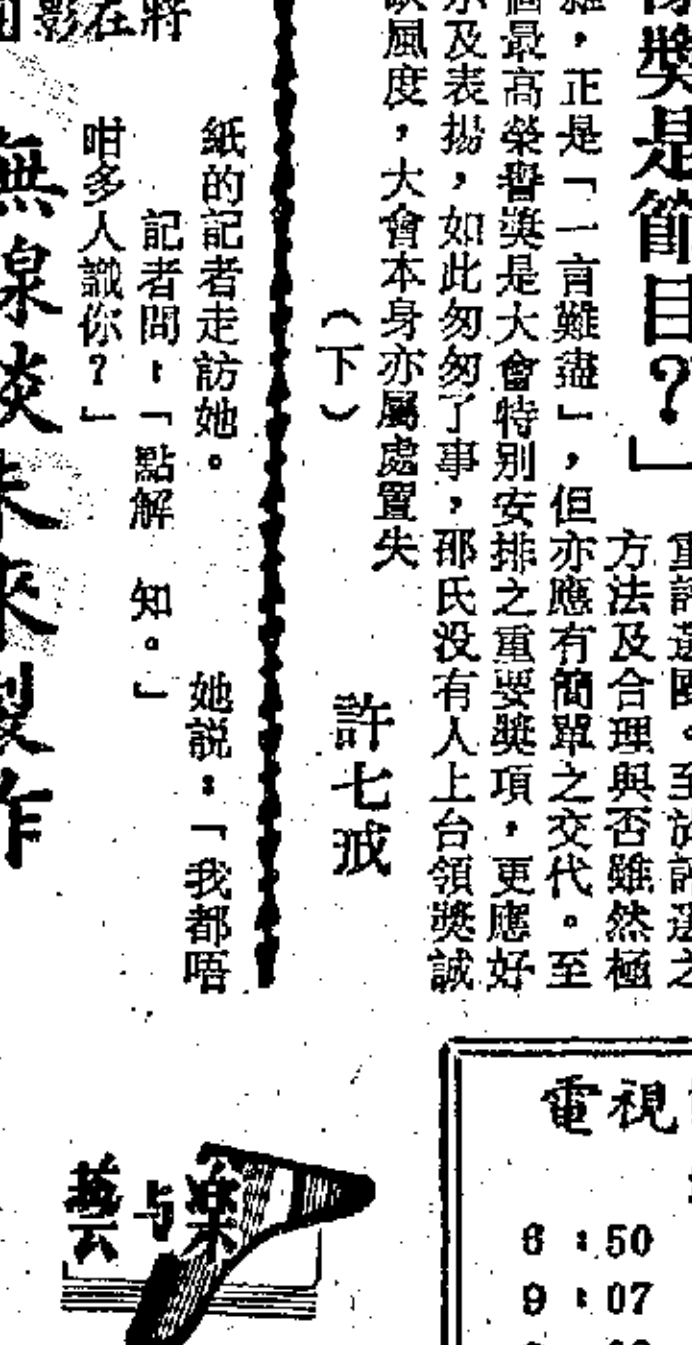 獎是節目?」
重評選
。至於評選之
方法及合理與否雖然極
,正是「一言難盡」,但亦應有簡單之交代。至
最高榮譽獎是大會特別安排之重要獎項,更應好
及表揚,如此匆匆了事,邵氏没有人上台領獎誠
風度,大會本身亦屬處置失
(下)
許七戒
紙的記者走訪她。
記者問:「點解
咁多人識你?」
她説:「我都唔
知。」
影在將
無線談未來製作
藝与楽
電視
6:50
9:07